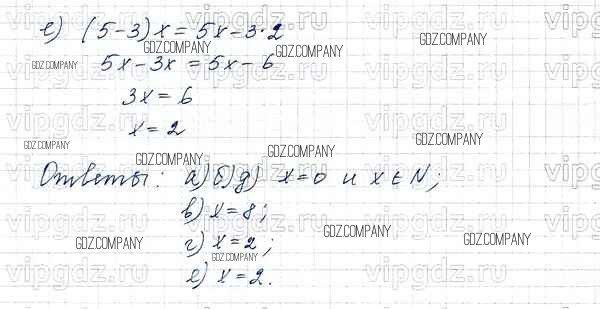 е) (5-3)x = 5x-3·2
5x-3x = 5x-6
3x = 6
x = 2
Ответы: а)б)д) x=0 и x∈N;
в) x=8;
г) x=2;
е) x=2.
vipgdz.ru
GDZ.COMPANY